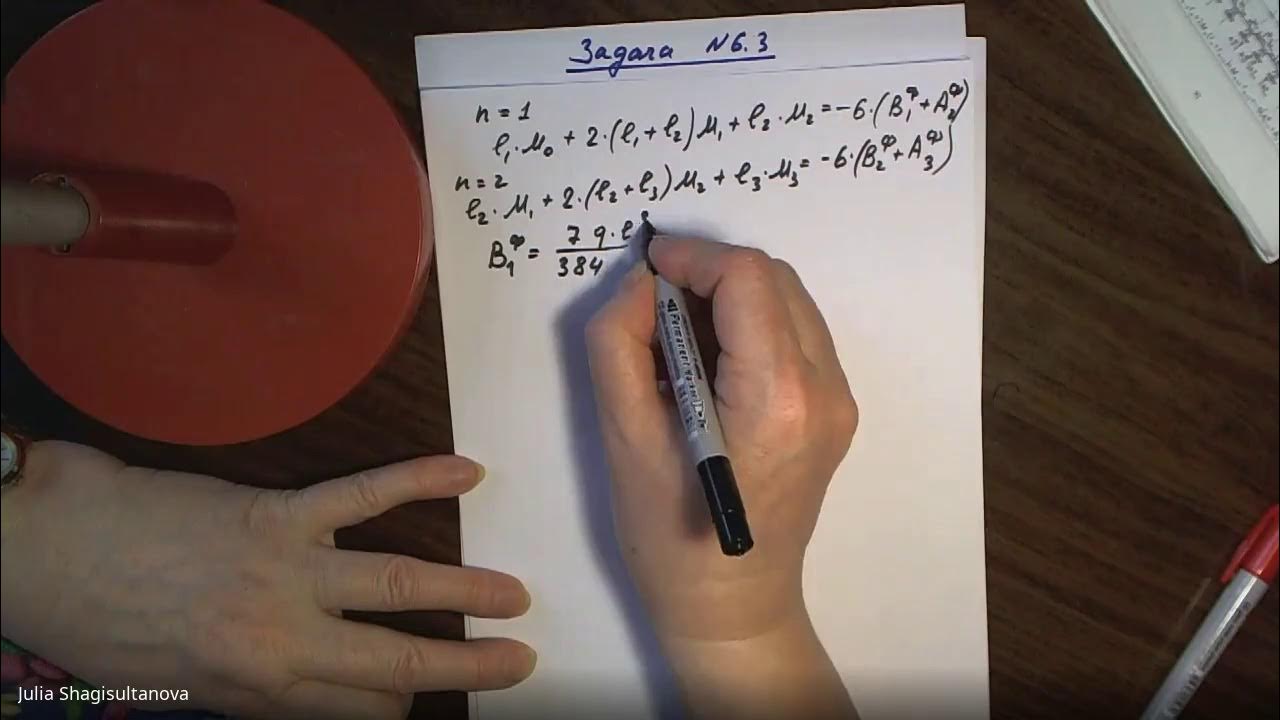 Задача №6.3
n = 1
l₁·M₀ + 2·(l₁ + l₂)M₁ + l₂·M₂ = -6·(B₁ᶲ + A₂ᶲ)
n = 2
l₂·M₁ + 2·(l₂ + l₃)M₂ + l₃·M₃ = -6·(B₂ᶲ + A₃ᶲ)
B₁ᶲ = 7 q·l / 384
Permanent
Julia Shagisultanova